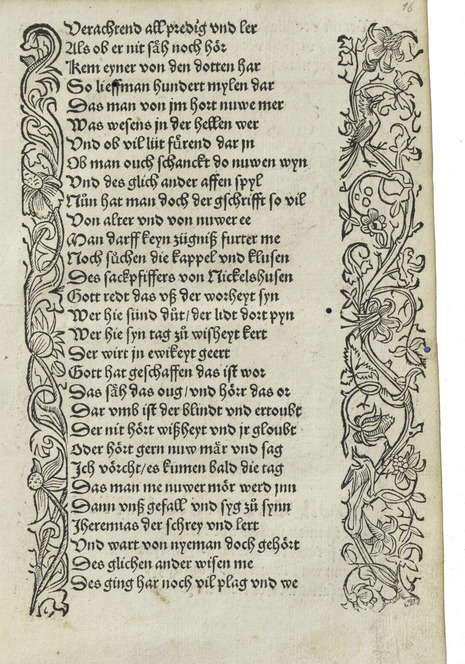 16
Verachtend all predig vnd ler
Als ob er nit säh noch hör
Kem eyner von den dotten har
So lieff man hundert mylen dar
Das man von jm hort nuwe mer
Was wesens jn der hellen wer
Vnd ob vil lüt fůrend dar jn
Ob man ouch schanckt do nuwen wyn
Vnd des glich ander affen spyl
Nůn hat man doch der gschrifft so vil
Von alter vnd von nuwer ee
Man darff keyn zügniß furter me
Noch sůchen die kappel vnd klusen
Des sackpfiffers von Nickelshusen
Gott redt das vß der worheyt syn
Wer hie sünd důt / der lidt dort pyn
Wer hie syn tag zů wißheyt kert
Der wirt jn ewikeyt geert
Gott hat geschaffen das ist wor
Das säh das oug / vnd hörr das or
Dar vmb ist der blindt vnd ertoubt
Der nit hört wißheyt vnd jr gloubt
Oder hört gern nuw mär vnd sag
Ich vörcht / es kumen bald die tag
Das man me nuwer mör werd jnn
Dann vnß gefall vnd syg zů synn
Jheremias der schrey vnd lert
Vnd wart von nyeman doch gehört
Des glichen ander wisen me
Des ging har noch vil plag vnd we